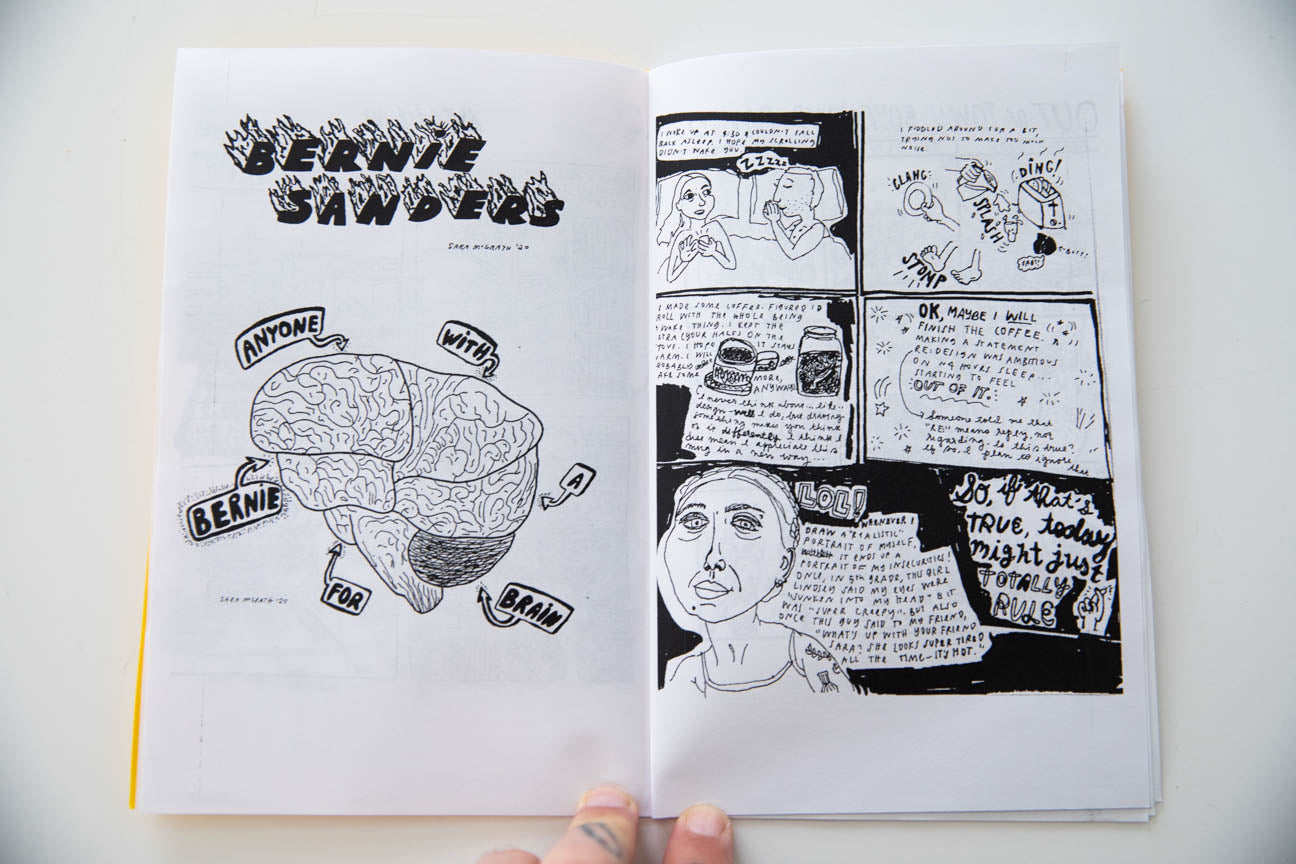 BERNIE
SANDERS
SARA McGRATH '20
ANYONE
WITH
A
BRAIN
FOR
BERNIE
SARA McGRATH '20
I WOKE UP AT 4:30 & COULDN'T FALL
BACK ASLEEP. I HOPE MY SCROLLING
DIDN'T WAKE YOU.
ZZZZZ
I FIDDLED AROUND FOR A BIT,
TRYING NOT TO MAKE TOO MUCH
NOISE.
CLANG
DING!
SPLASH
STOMP
FART!
I MADE SOME COFFEE. FIGURED I'D
ROLL WITH THE WHOLE BEING
AWAKE THING. I KEPT THE
XTRA (YOUR HALF) ON THE
STOVE. I HOPE IT STAYS
WARM. I WILL
PROBABLY
MAKE SOME MORE,
ANYWAY
I never think about... like..
design - well I do, but drawing
something makes you think
of it differently I think I
just mean I appreciate this
mug in a new way...
OK, MAYBE I WILL
FINISH THE COFFEE.
MAKING A STATEMENT
RE: DESIGN WAS AMBITIOUS
ON 4 HOURS SLEEP...
STARTING TO FEEL
OUT OF IT.
Someone told me that
"RE" means reply, not
regarding. Is this true?
If so, I plan to ignore this
LOL!
WHENEVER I
DRAW A "REALISTIC"
PORTRAIT OF MYSELF,
IT ENDS UP A
PORTRAIT OF MY INSECURITIES!
ONCE, IN 5th GRADE, THIS GIRL
LINDSEY SAID MY EYES WERE
"SUNKEN INTO MY HEAD" & IT
WAS "SUPER CREEPY". BUT ALSO
ONCE THIS GUY SAID TO MY FRIEND,
"WHAT'S UP WITH YOUR FRIEND
SARA? SHE LOOKS SUPER TIRED
ALL THE TIME - IT'S HOT."
So, if that's
TRUE, today
might just
TOTALLY
RULE